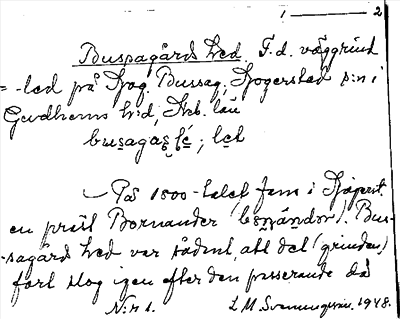 1 — 2
Bussagårds Led. F.d. väggrind
= -led på Sjog. Bussag, Sjogerstad s:n i
Gudhems h:d, Skb. län
; let
På 1800-talet fans i Sjogerst.
en präst Bornander . Bus-
-sagård Led var sådant, att det (grinden)
fort slog igen efter den passerande då
N:r 1. L M. Svenungsson. 1948.